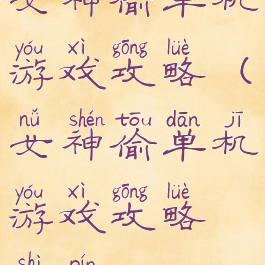 女神偷单机
yóu xì gōng lüè
游戏攻略（
nǚ shén tōu dān jī
女神偷单机
yóu xì gōng lüè
游戏攻略
shì pín